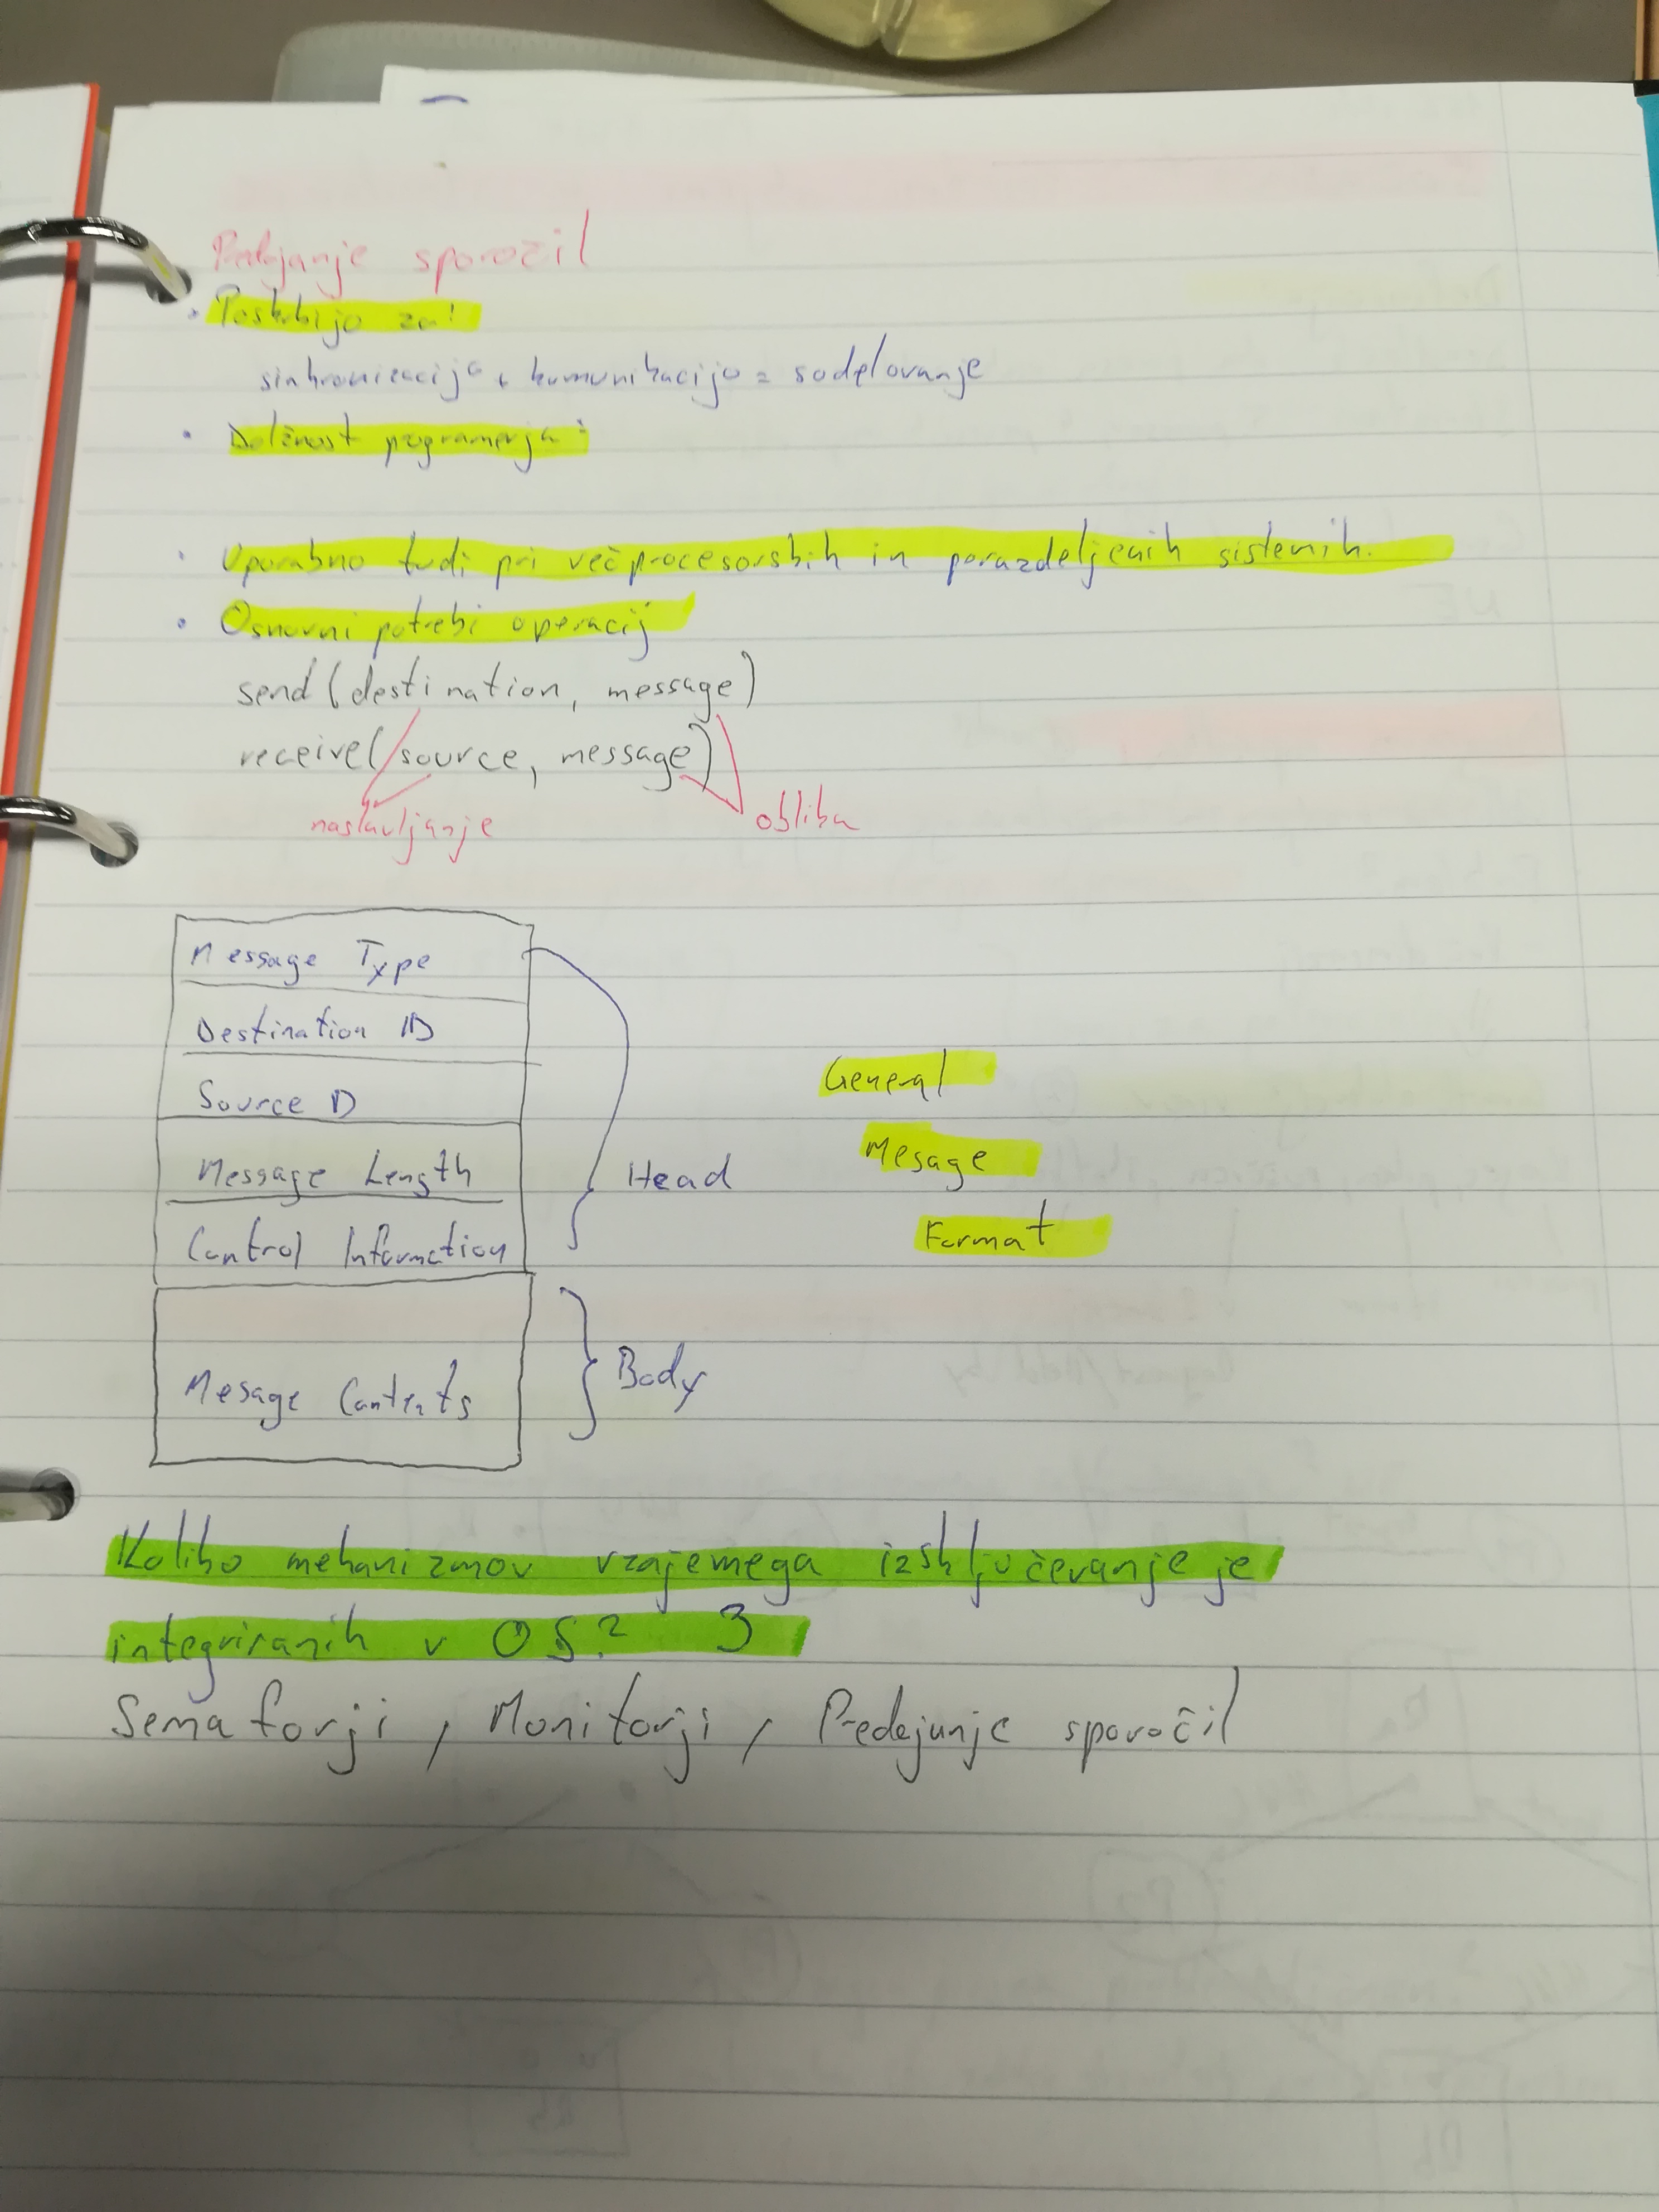 Predajanje sporočil
• Poskrbijo za:
sinhronizacija + komunikacijo = sodelovanje
• Dolžnost programerja:
• Uporabno tudi pri večprocesorskih in porazdeljenih sistemih.
• Osnovni potrebi operacij
send(destination, message)
receive(source, message)
naslavljanje oblika
Message Type
Destination ID
Source ID
Message Length
Control Information
Head
General
Mesage
Format
Mesage Contents
Body
Koliko mehanizmov vzajemega izključevanje je
integriranih v OS? 3
Semaforji, Monitorji, Predajanje sporočil